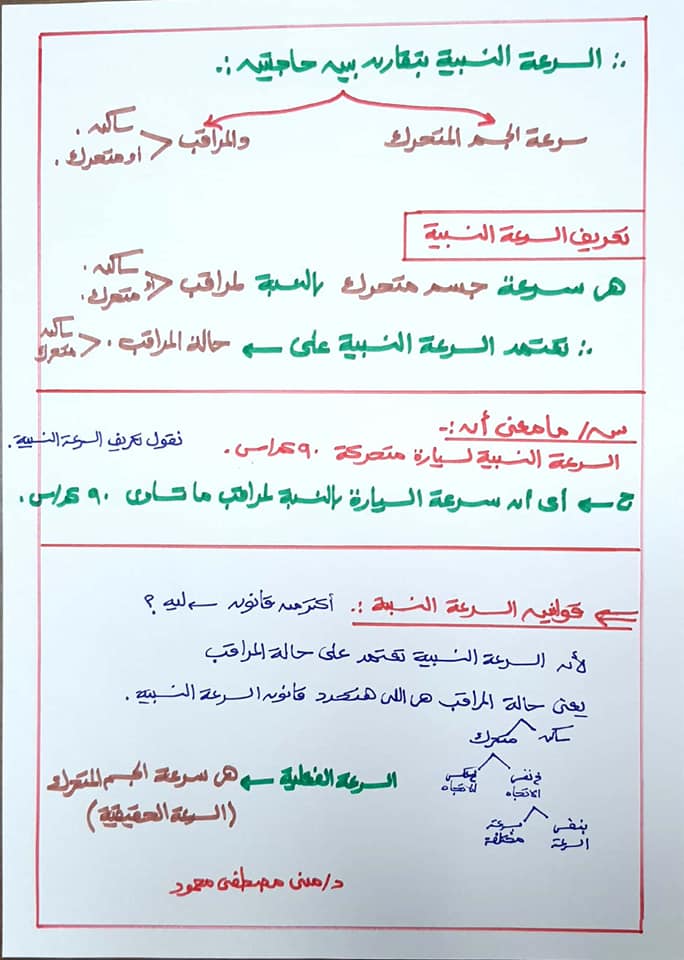 ∴ السرعة النسبية بتقارن بين حاجتين :.
سرعة الجسم المتحرك
والمراقب < ساكن .
أو متحرك .
تعريف السرعة النسبية
هى سرعة جسم متحرك بالنسبة لمراقب < ساكن .
أو متحرك .
∴ تعتمد السرعة النسبية على ← حالة المراقب . < ساكن
متحرك
س/ ما معنى أن :-
نقول تعريف السرعة النسبية .
السرعة النسبية لسيارة متحركة ٩٠ كم/س .
ج ← أى أن سرعة السيارة بالنسبة لمراقب ما تساوى ٩٠ كم/س .
⇐ قوانين السرعة النسبية :. أكتر من قانون ← ليه ؟
لأن السرعة النسبية تعتمد على حالة المراقب
يعنى حالة المراقب هى اللى هتحدد قانون السرعة النسبية .
ساكن متحرك
فى نفس الاتجاه
فى عكس الاتجاه
بنفس السرعة
سرعة مختلفة
السرعة الفعلية ← هى سرعة الجسم المتحرك
(السرعة الحقيقية)
د/ منى مصطفى محمود